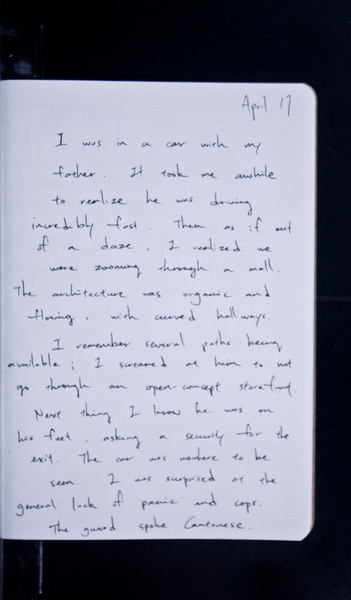 April 17
I was in a car with my
father. It took me awhile
to realize he was driving
incredibly fast. Then as if out
of a daze, I realized we
were zooming through a mall.
The architecture was organic and
flowing, with curved hallways.
I remember several paths being
available; I screamed at him to not
go through an open-concept storefront.
Next thing I know he was on
his feet, asking a security for the
exit. The car was nowhere to be
seen. I was surprised at the
general lack of panic and cops.
The guard spoke Cantonese.